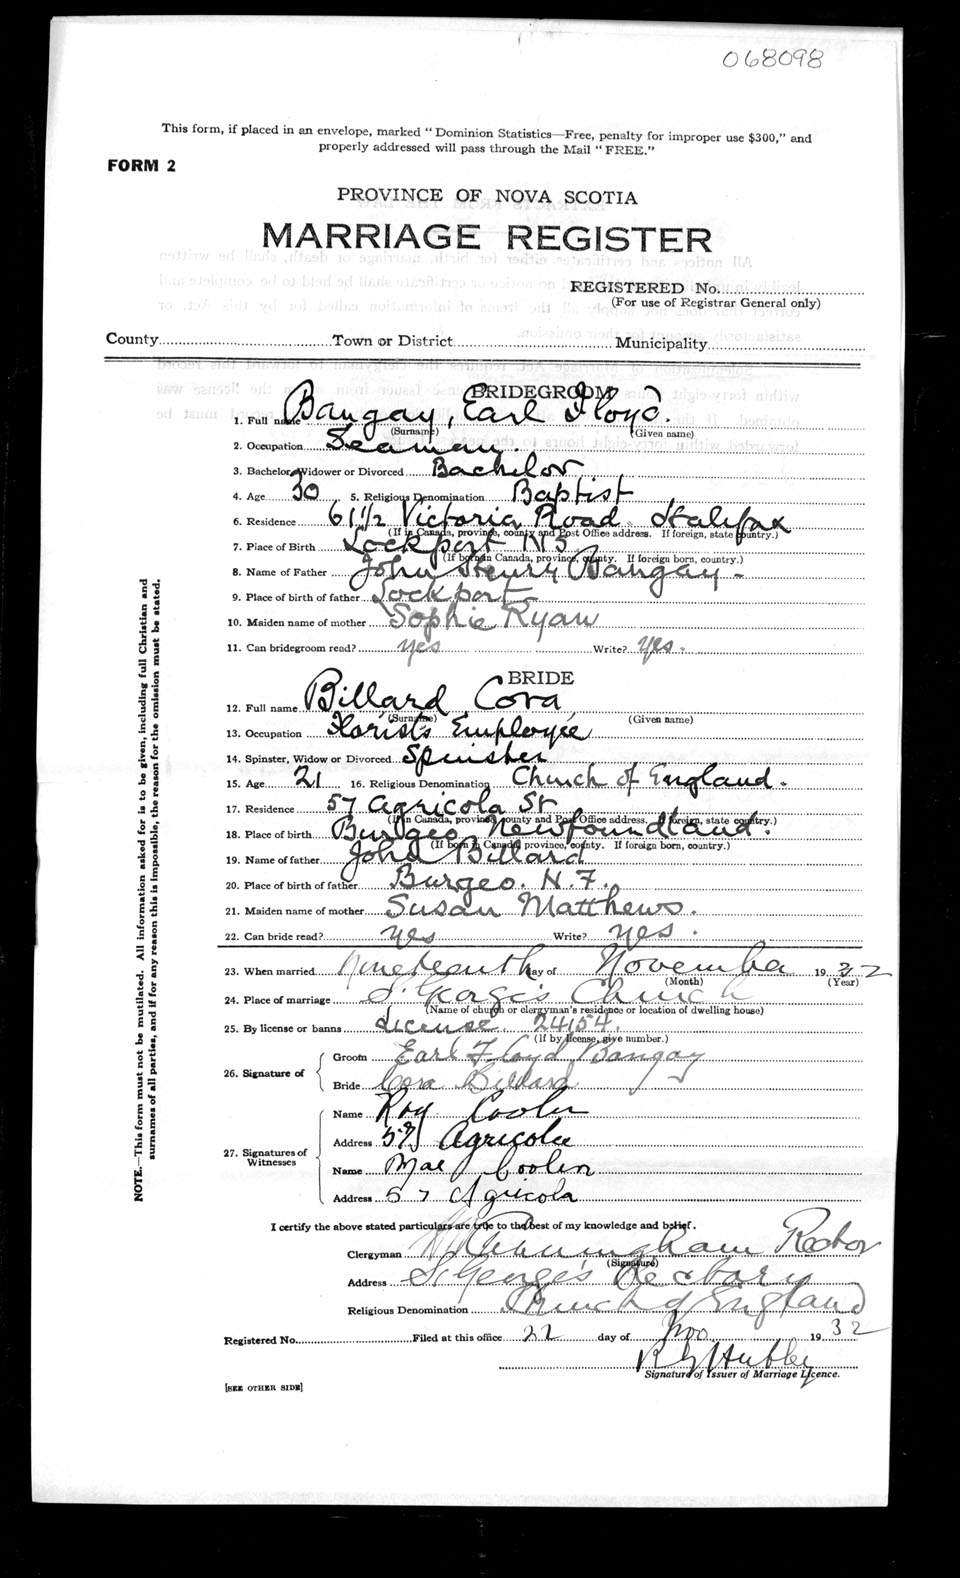 068098
This form, if placed in an envelope, marked "Dominion Statistics—Free, penalty for improper use $300," and
properly addressed will pass through the Mail "FREE."
FORM 2
PROVINCE OF NOVA SCOTIA
MARRIAGE REGISTER
REGISTERED No.
(For use of Registrar General only)
County Town or District Municipality
BRIDEGROOM
1. Full name Bangay, Earl Floyd.
(Surname) (Given name)
2. Occupation Seaman.
3. Bachelor, Widower or Divorced Bachelor
4. Age 30 5. Religious Denomination Baptist
6. Residence 61 1/2 Victoria Road Halifax
(If in Canada, province, county and Post Office address. If foreign, state country.)
7. Place of Birth Lockport N S
(If born in Canada, province, county. If foreign born, country.)
8. Name of Father John Henry Bangay -
9. Place of birth of father Lockport
10. Maiden name of mother Sophie Ryan
11. Can bridegroom read? yes Write? yes.
BRIDE
12. Full name Billard, Cora,
(Surname) (Given name)
13. Occupation Florists Employee
14. Spinster, Widow or Divorced Spinster
15. Age 21 16. Religious Denomination Church of England.
17. Residence 57 Agricola St
(If in Canada, province, county and Post Office address. If foreign, state country.)
18. Place of birth Burgeo Newfoundland.
(If born in Canada, province, county. If foreign born, country.)
19. Name of father John Billard
20. Place of birth of father Burgeo. N.F.
21. Maiden name of mother Susan Matthews.
22. Can bride read? yes Write? yes.
23. When married Nineteenth day of November 1932
(Month) (Year)
24. Place of marriage St George's Church
(Name of church or clergyman's residence or location of dwelling house)
25. By license or banns License 24154.
(If by license, give number.)
26. Signature of
Groom Earl Floyd Bangay
Bride Cora Billard
27. Signatures of Witnesses
Name Roy Coolen
Address 57 Agricola
Name Mae Coolen
Address 57 Agricola
I certify the above stated particulars are true to the best of my knowledge and belief.
Clergyman Cunningham Rector
(Signature)
Address St George's Rectory
Religious Denomination Church of England
Registered No. Filed at this office 22 day of Nov 1932
Hubley
Signature of Issuer of Marriage Licence.
[SEE OTHER SIDE]
NOTE.—This form must not be mutilated. All information asked for is to be given, including full Christian and
surnames of all parties, and if for any reason this is impossible, the reason for the omission must be stated.